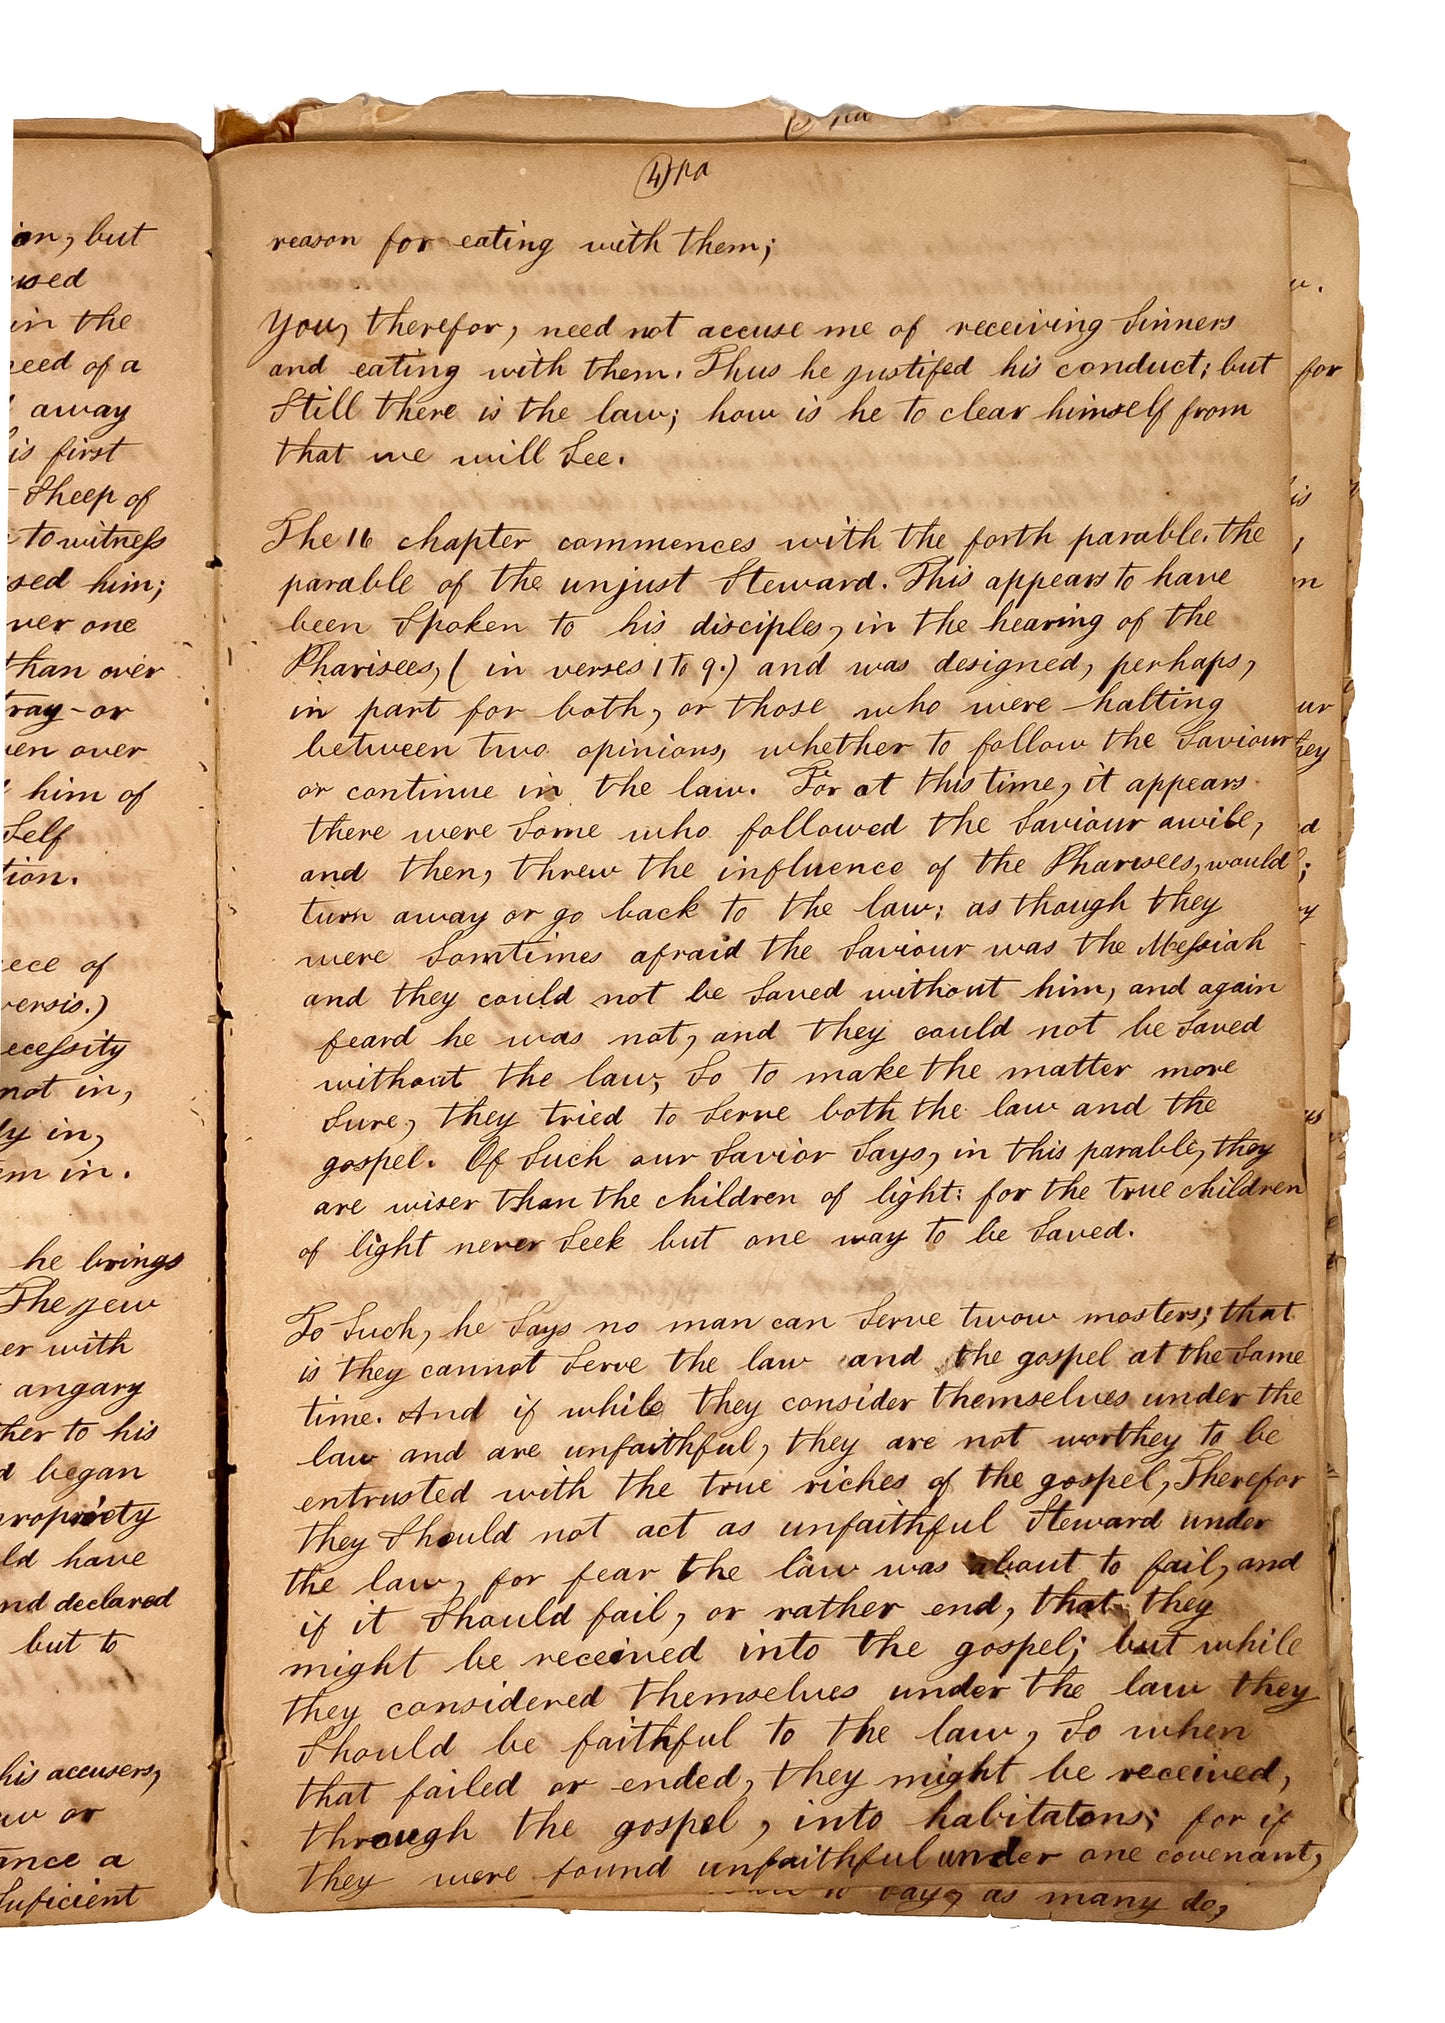 4) pa
reason for eating with them;
You, therefor, need not accuse me of receiving Sinners
and eating with them. Thus he justifed his conduct; but
Still there is the law; how is he to clear himself from
that we will See.
The 16 chapter commences with the forth parable. the
parable of the unjust Steward. This appears to have
been Spoken to his disciples, in the hearing of the
Pharisees, ( in verses 1 to 9.) and was designed, perhaps,
in part for both, or those who were halting
between two opinions, whether to follow the Saviour
or continue in the law. For at this time, it appears
there were Some who followed the Saviour awile,
and then, threw the influence of the Pharisees, would
turn away or go back to the law; as though they
were Somtimes afraid the Saviour was the Messiah
and they could not be Saved without him, and again
feard he was not, and they could not be Saved
without the law, So to make the matter more
Sure, they tried to Serve both the law and the
gospel. Of Such our Savior Says, in this parable, they
are wiser than the children of light: for the true children
of light never Seek but one way to be Saved.
To Such, he Says no man can Serve twow masters; that
is they cannot Serve the law and the gospel at the Same
time. And if while they consider themselves under the
law and are unfaithful, they are not worthey to be
entrusted with the true riches of the gospel, Therefor
they Should not act as unfaithful Steward under
the law, for fear the law was about to fail, and
if it Should fail, or rather end, that they
might be received into the gospel; but while
they considered themselves under the law they
Should be faithful to the law, So when
that failed or ended, they might be received,
through the gospel, into habitatons; for if
they were found unfaithful under one covenant,
day, as many do,
but
in the
of a
away
is first
Sheep of
to witness
him;
one
than over
or
over
him of
Self
of
versis.)
not in,
in,
in.
he brings
The jew
with
angary
to his
began
have
and declared
but to
his accusers,
or
a
Suficient
for